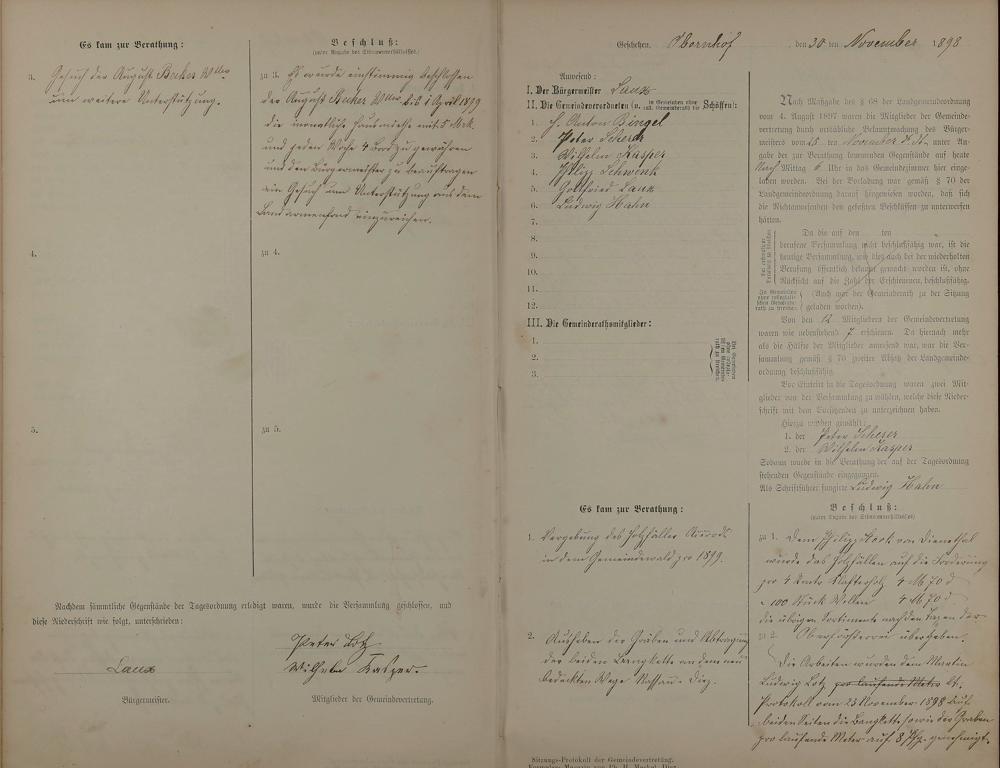 Es kam zur Berathung:
Beschluß:
(unter Angabe des Stimmenverhältnisses)
3. Gesuch der August Becker Wwe
um weitere Unterstützung.
zu 3. Es wurde einstimmig beschlossen
der August Becker Wwe bis 1 April 1899
die monatliche Hausmiethe mit 5 Mrk
und jeden Woche 4 Brod zu gewähren
und den Bürgermeister zu beauftragen
ein Gesuch um Unterstützung aus dem
Landarmenfond einzureichen.
4.
zu 4.
5.
zu 5.
Nachdem sämmtliche Gegenstände der Tagesordnung erledigt waren, wurde die Versammlung geschlossen, und
diese Niederschrift wie folgt, unterschrieben:
Peter Lotz
Laux
Wilhelm Kasper.
Bürgermeister.
Mitglieder der Gemeindevertretung.
Geschehen, Obernhof, den 30 ten November 1898
Anwesend:
I. Der Bürgermeister Laux
II. Die Gemeindeverordneten (u. in Gemeinden ohne coll. Gemeinderath die Schöffen):
1. Anton Bingel
2. Peter Scherer
3. Wilhelm Kasper
4. Philipp Schwenk
5. Gottfried Laux
6. Ludwig Hahn
7.
8.
9.
10.
11.
12.
III. Die Gemeinderathsmitglieder:
1.
2.
3.
Nach Maßgabe des § 68 der Landgemeindeordnung
vom 4. August 1897 waren die Mitglieder der Gemeinde-
vertretung durch ortsübliche Bekanntmachung des Bürger-
meisters vom 25 ten November d. Js. unter An-
gabe der zur Berathung kommenden Gegenstände auf heute
Nach Mittag 6 Uhr in das Gemeindezimmer hier einge-
laden worden. Bei der Vorladung war gemäß § 70 der
Landgemeindeordnung darauf hingewiesen worden, daß sich
die Nichtanwesenden den gefaßten Beschlüssen zu unterwerfen
hätten.
Da die auf den ten
berufene Versammlung nicht beschlußfähig war, ist die
heutige Versammlung, wie dies auch bei der wiederholten
Berufung öffentlich bekannt gemacht worden ist, ohne
Rücksicht auf die Zahl der Erschienenen, beschlußfähig.
(Auch war der Gemeinderath zu der Sitzung
geladen worden).
Von den 12 Mitgliedern der Gemeindevertretung
waren wie nebenstehend 7 erschienen. Da hiernach mehr
als die Hälfte der Mitglieder anwesend war, war die Ver-
sammlung gemäß § 70 zweiter Absatz der Landgemeinde-
ordnung beschlußfähig.
Vor Eintritt in die Tagesordnung waren zwei Mit-
glieder von der Versammlung zu wählen, welche diese Nieder-
schrift mit dem Vorsitzenden zu unterzeichnen haben.
Hierzu wurden gewählt:
1. der Peter Scherer
2. der Wilhelm Kasper
Sodann wurde in die Berathung der auf der Tagesordnung
stehenden Gegenstände eingegangen.
Als Schriftführer fungirte Ludwig Hahn
Es kam zur Berathung:
Beschluß:
(unter Angabe des Stimmenverhältnisses)
1. Vergebung des Holzfäller Accords
in dem Gemeindewald pro 1899.
zu 1. Dem Philipp von Dienethal
wurde das Holzfällen auf die Forderung
pro 4 Klafterholz 4 M 70 d
" 100 Stück Wellen 4 M 70 d
die übrigen Sortimente nach den Taxen der
Oberförsterei übergeben.
2. Ausheben der Gräben und Abtragung
der beiden Bangkette an dem neu
bedeckten Wege Nassau - Diez.
zu 2.
Die Arbeiten wurden dem Martin
Ludwig Lotz pro laufende Meter lt.
Protokoll vom 23 November 1898 auf
beiden Seiten die Bangkette sowie der Graben
pro laufende Meter auf 8 Pfg. genehmigt.
Sitzungs-Protokoll der Gemeindevertretung.